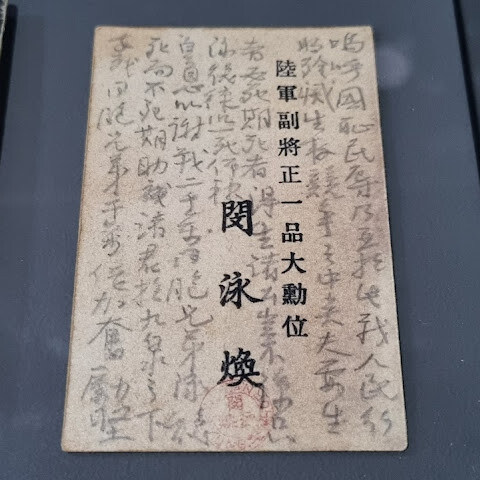 嗚呼國恥民辱乃至於此我人民行
將殄滅生存競爭之中矣夫要生
陸軍副將正一品大勳位
者必死期死者得生諸公豈不諒只
閔泳煥
泳煥徒以一死仰報
皇恩以謝我二千万同胞兄弟泳煥
死而不死期助我諸君於九泉之下
幸我同胞兄弟千万倍加奮勵堅